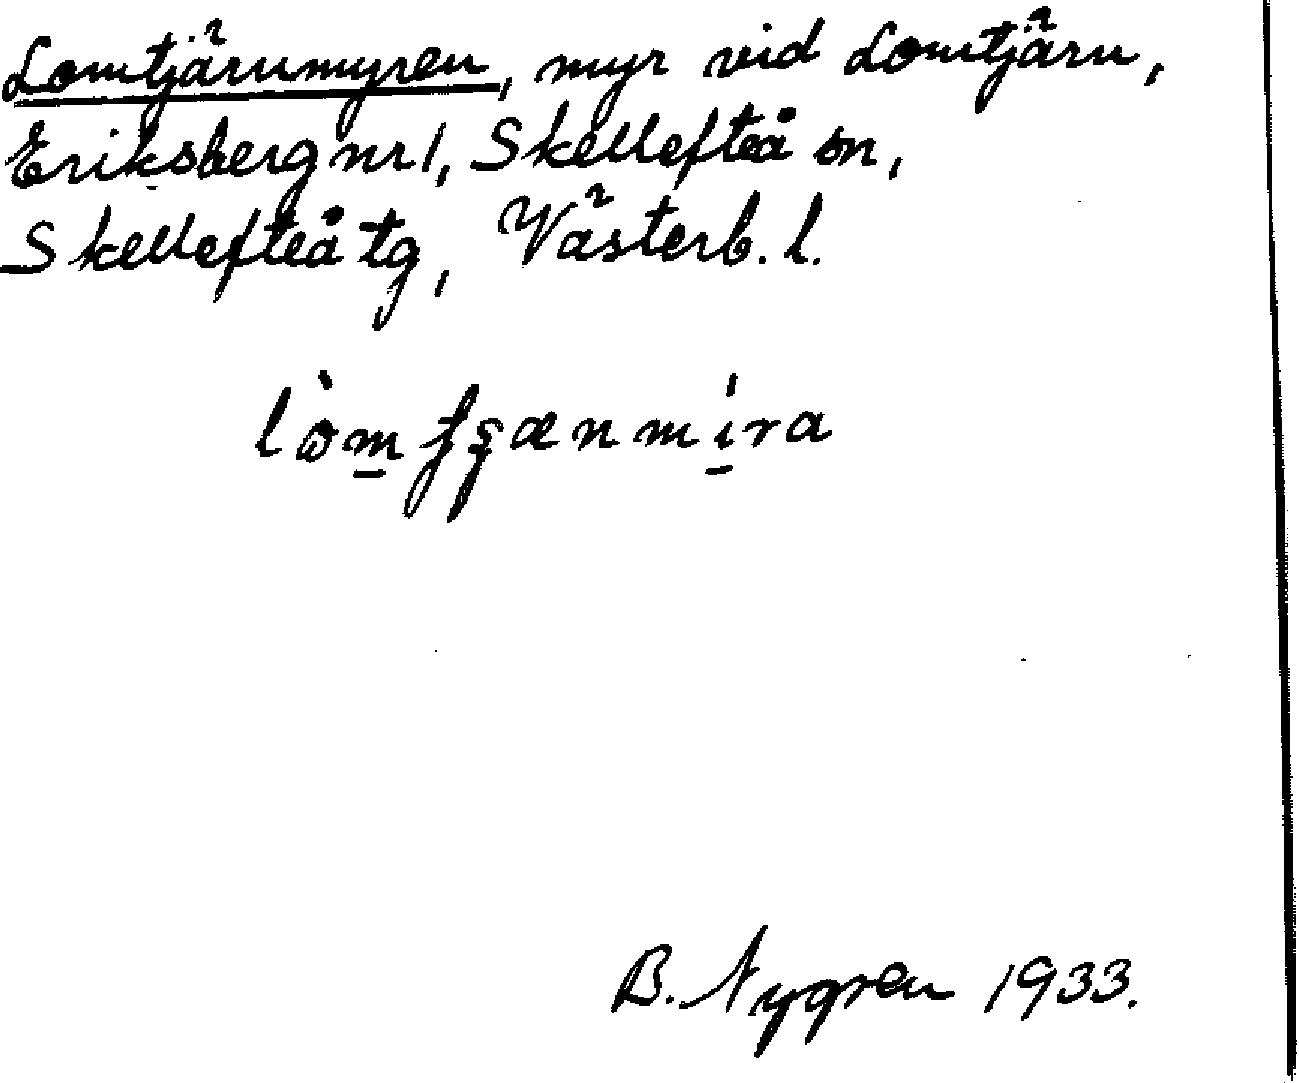 Lomtjärnmyren, myr vid Lomtjärn,
Eriksberg nr 1, Skellefteå sn,
Skellefteå tg, Västerb. l.
B. Nygren 1933.